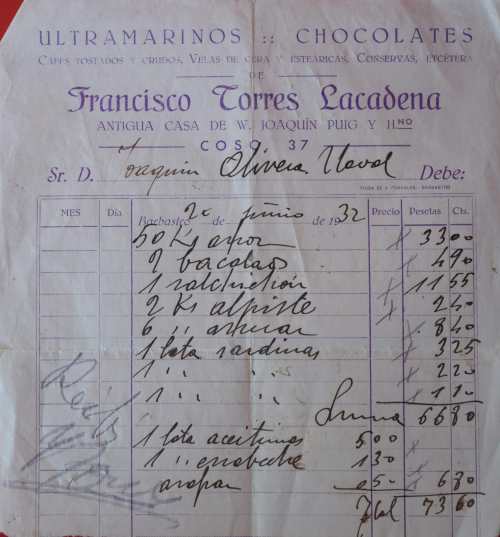 ULTRAMARINOS :: CHOCOLATES
CAFES TOSTADOS Y CRUDOS, VELAS DE CERA Y ESTEÁRICAS, CONSERVAS, ETCÉTERA
DE
Francisco Torres Lacadena
ANTIGUA CASA DE W. JOAQUÍN PUIG Y HNO
COSO, 37
Sr. D. Joaquin Olivera Naval Debe:
MES Día Barbastro 20 de junio de 1932 Precio Pesetas Cts.
50 Ks arroz 33 00
2 bacalaos 4 90
1 salchichón 11 55
2 Ks alpiste 2 40
6 " azucar 8 40
1 lata sardinas 3 25
1 " " 2 20
1 " " 1 10
Suma 66 80
1 lata aceitunas 5 00
1 " escabeche 1 30
50 6 80
Total 73 60